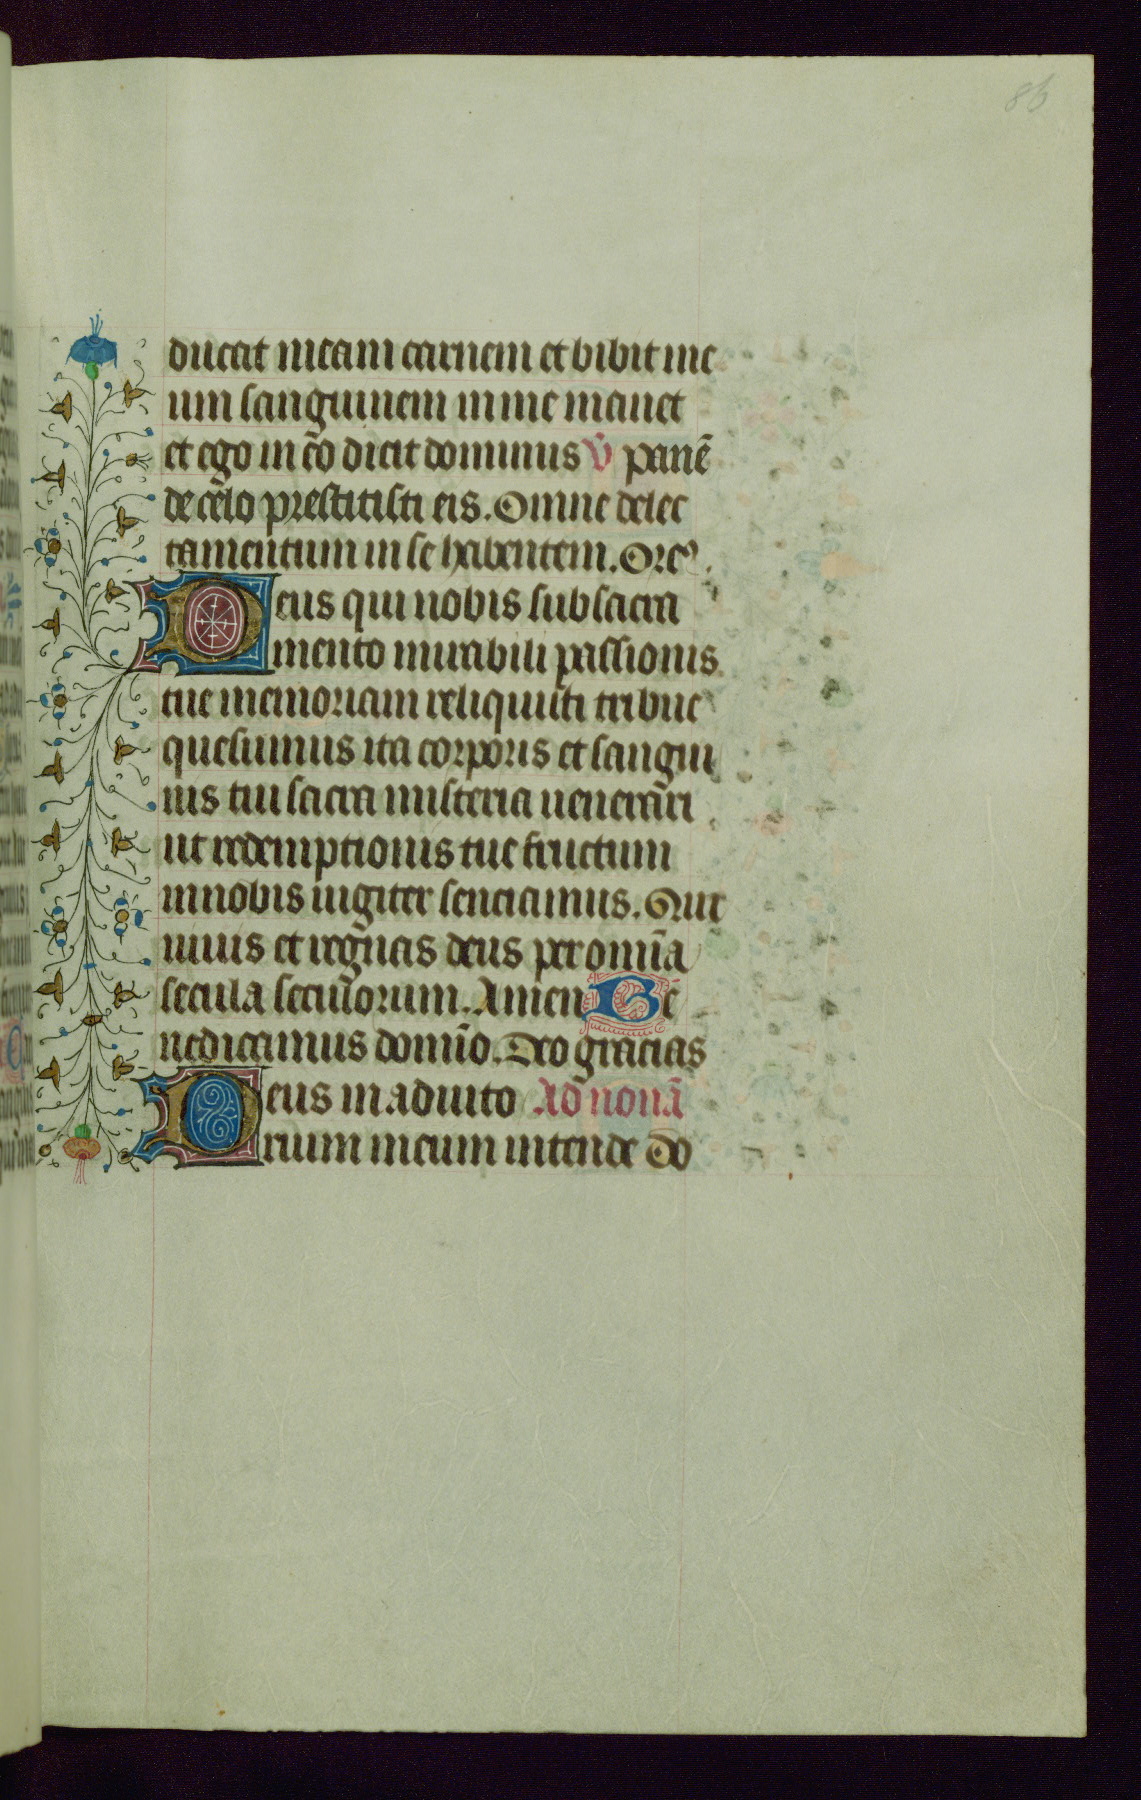 86
ducat meam carnem et bibit me
um sanguinem in me manet
et ego in eo dicit dominus V̄ panē
de celo prestitisti eis. Omne delec
tamentum in se habentem. Oreꝰ.
Deus qui nobis sub sacra
mento mirabili passionis
tue memoriam reliquisti tribue
quesumus ita corporis et sangui
nis tui sacra misteria uenerari
ut redemptionis tue fructum
in nobis iugiter senciamus. Qui
uiuis et regnas deus per omīa
secula seculorum. Amen Be
nedicamus domīo. Deo gracias
Deus in adiuto Ad nonā
rium meum intende Do